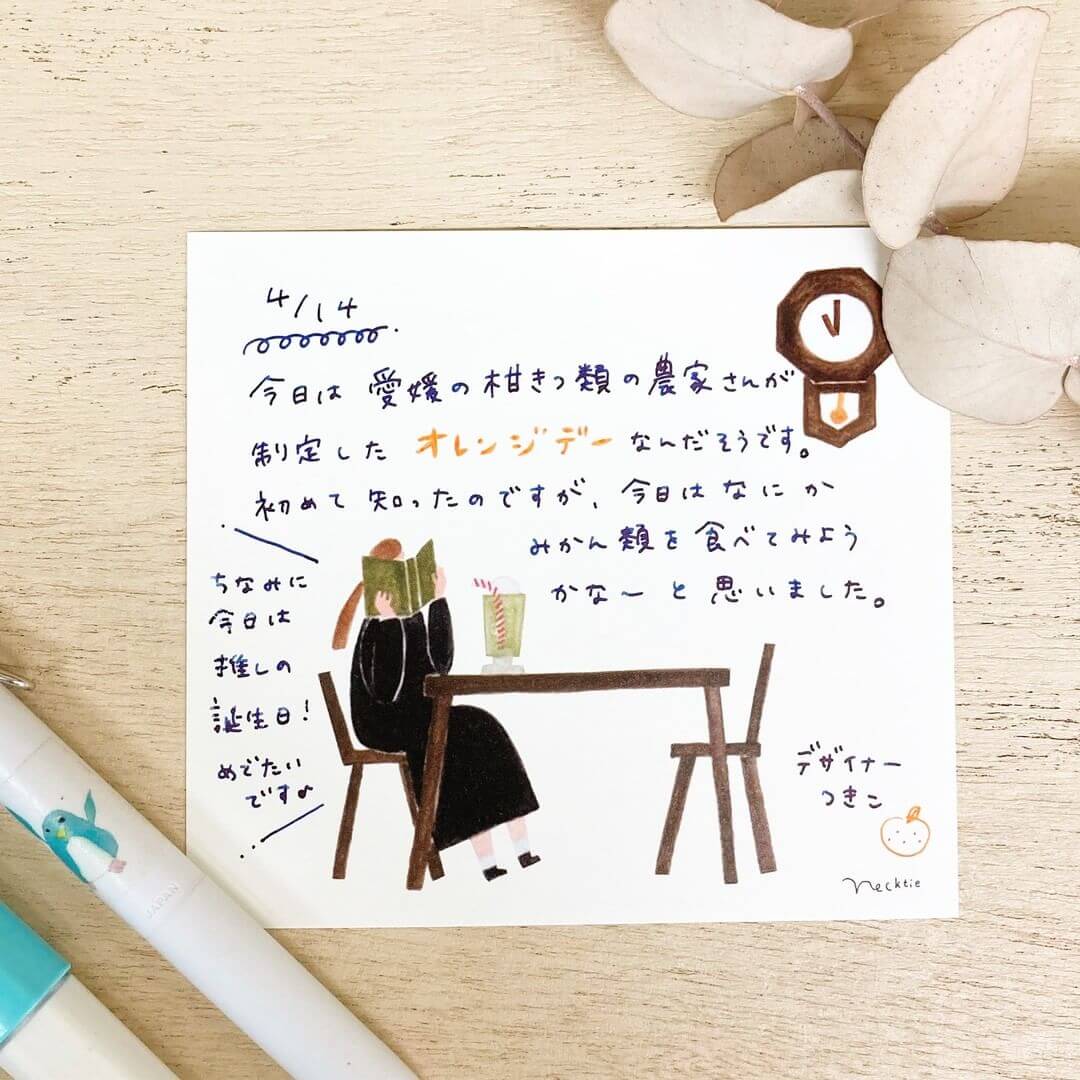 4/14
今日は愛媛の柑きつ類の農家さんが
制定したオレンジデーなんだそうです。
初めて知ったのですが、今日はなにか
みかん類を食べてみよう
かな〜と思いました。
ちなみに
今日は
推しの
誕生日!
めでたい
です♪
デザイナー
つきこ
necktie
JAPAN